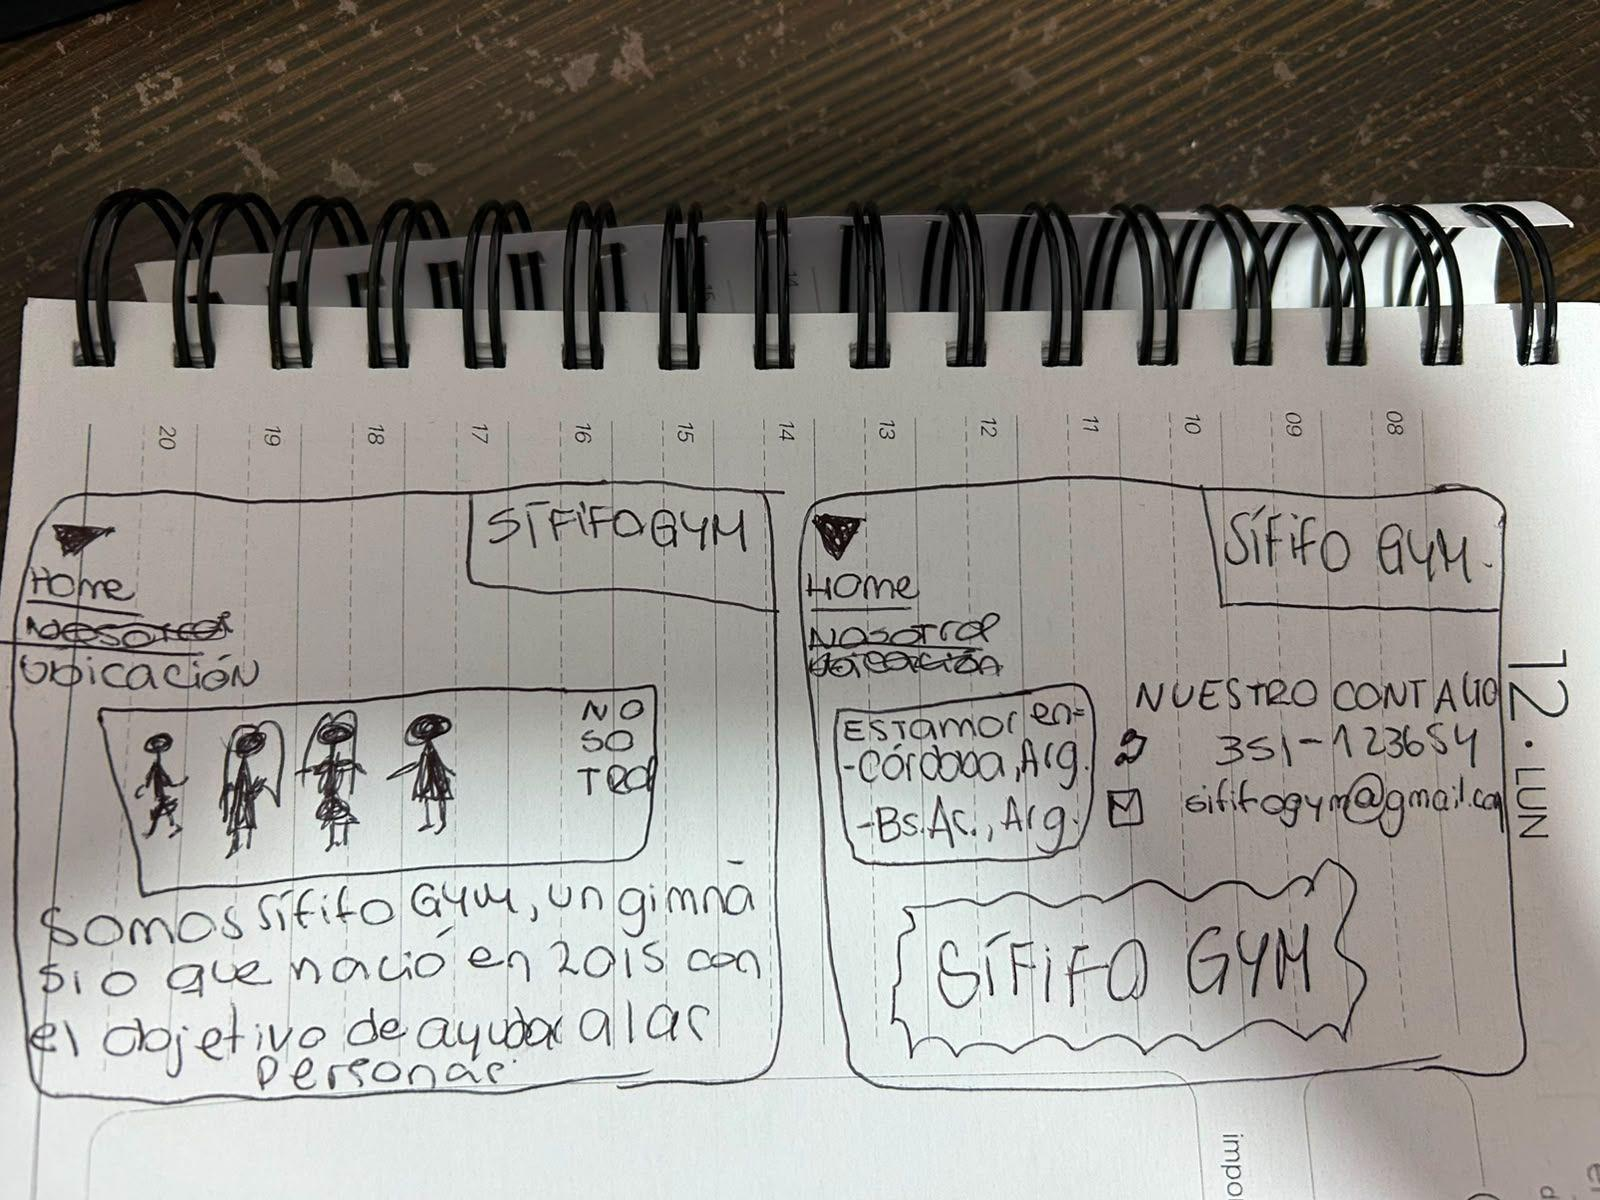 20
19
18
17
16
15
14
13
12
11
10
09
08
12. LUN
SÍFIFO GYM
Home
Nosotros
Ubicación
NO
SO
TROS
Somos Sífifo GYM, un gimna
sio que nació en 2015 con
el objetivo de ayudar a las
personas.
SÍFIFO GYM.
Home
Nosotros
Ubicación
ESTAMOS en=
-Córdoba, Arg.
-Bs.As., Arg.
NUESTRO CONTACTO
351-123654
sififogym@gmail.com
SÍFIFO GYM
impo